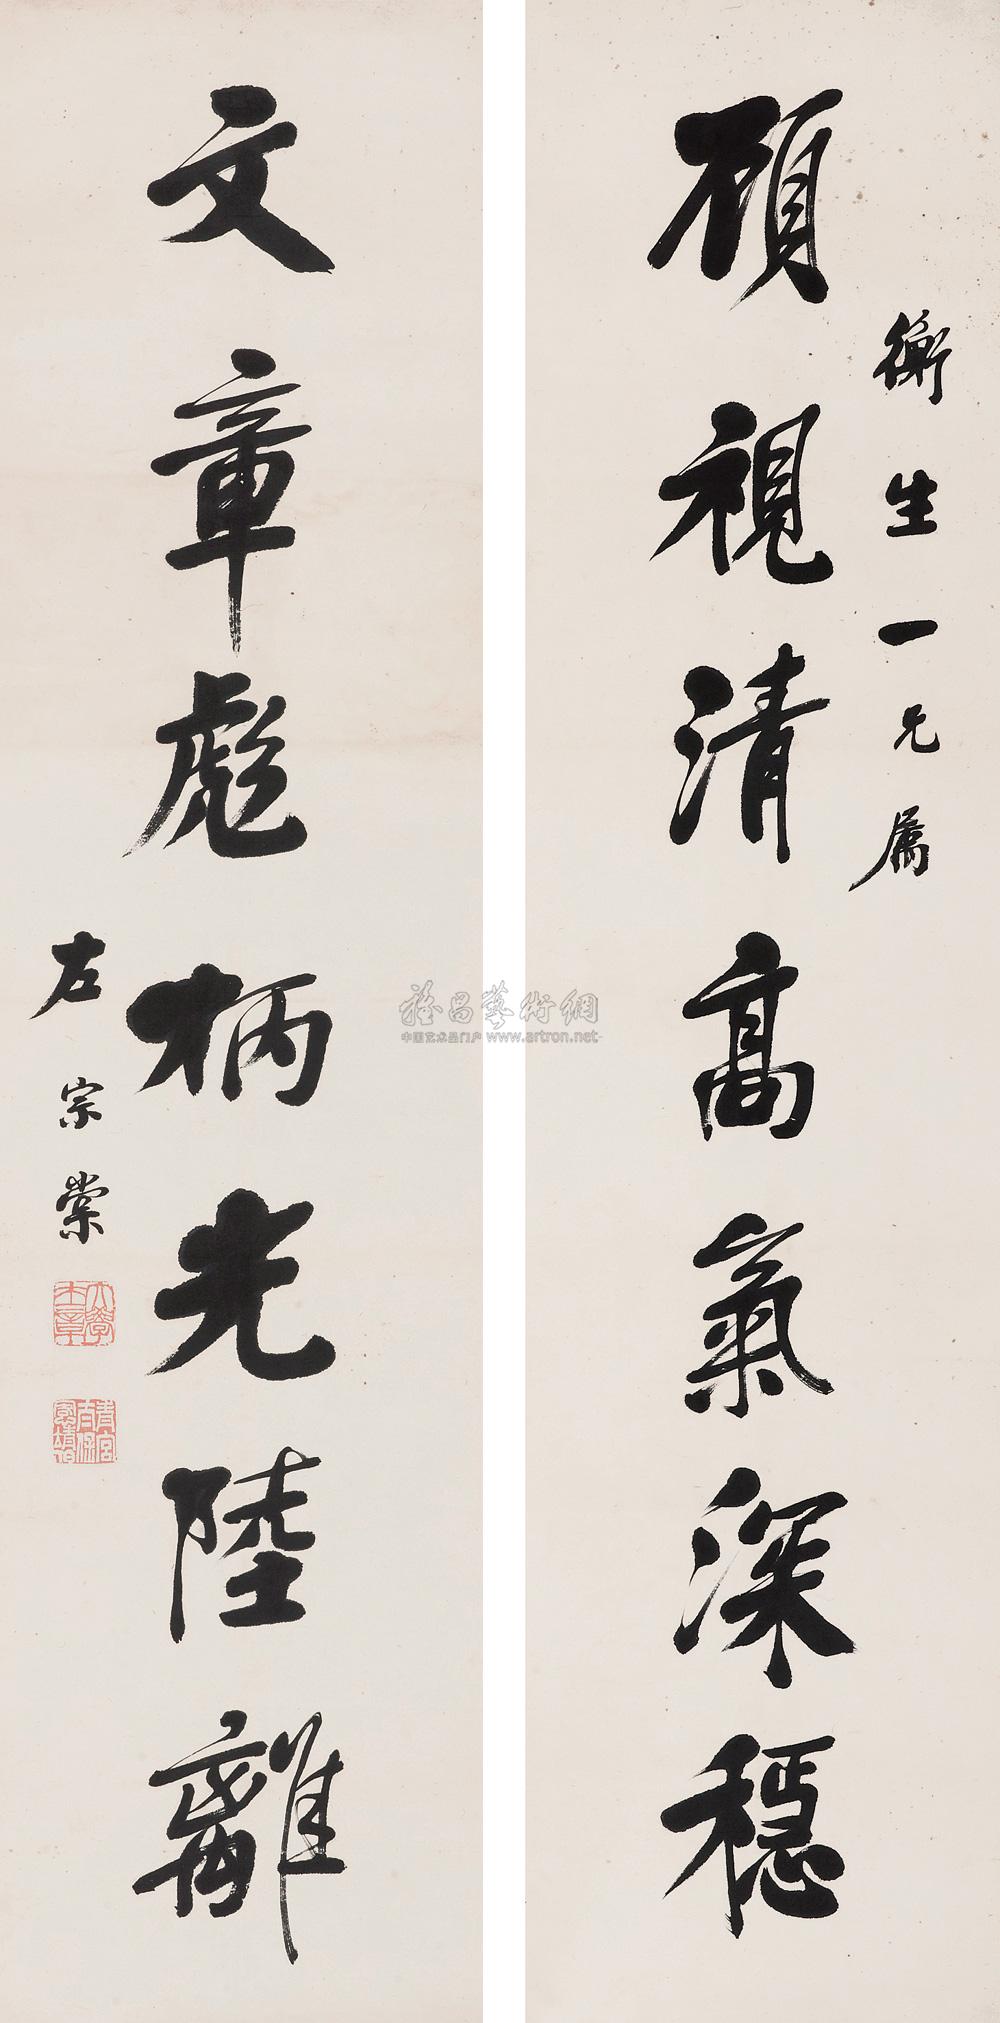 衡生一兄属
顧視清高氣深穩
文章彪柄光陸離
左宗棠
大學士章
雅昌藝術網
中国艺术品门户 www.artron.net